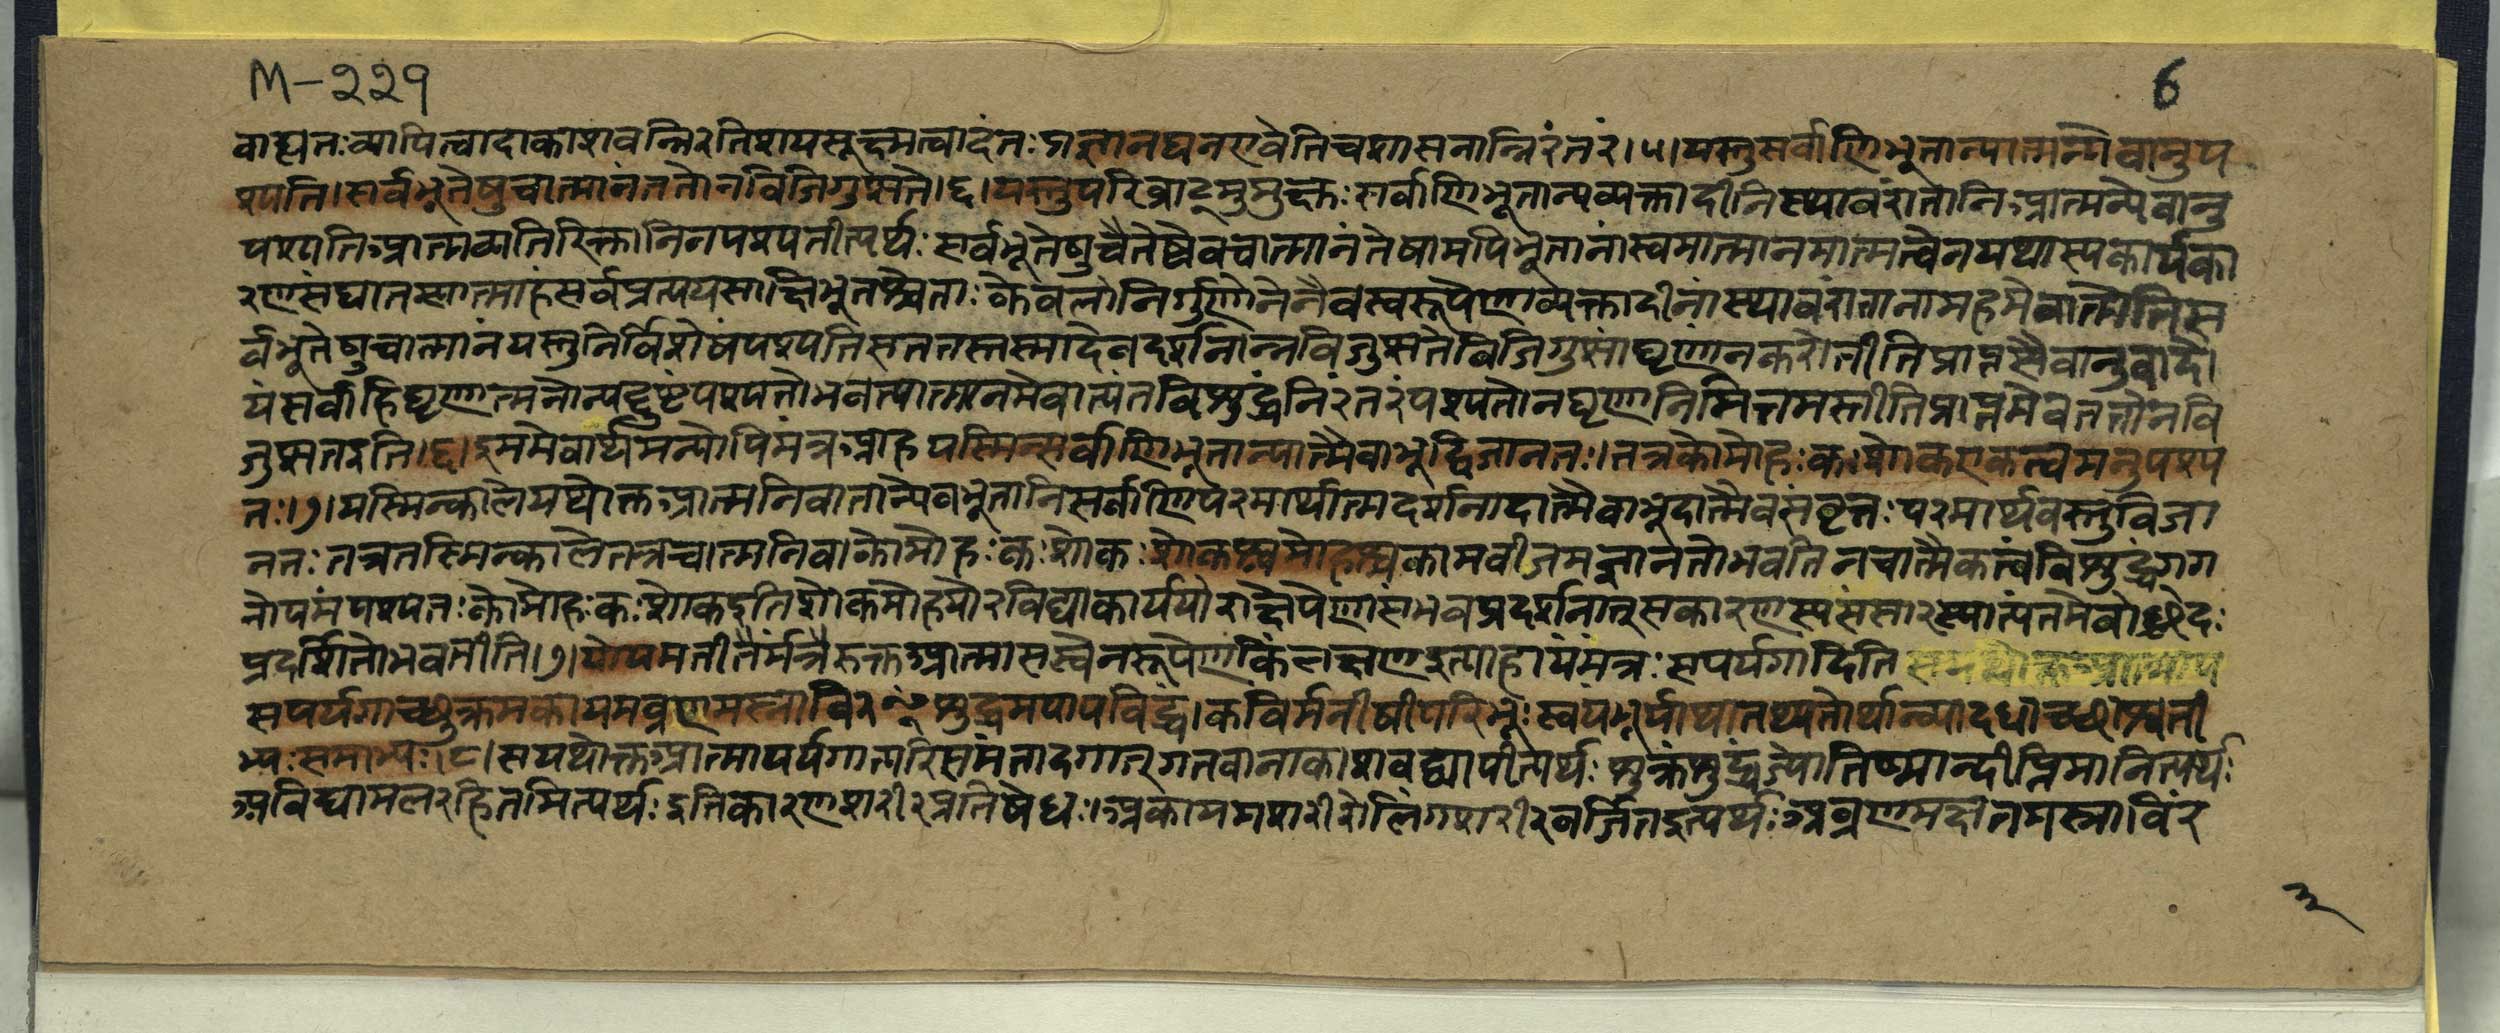 M-२२१
6
वाह्यतःव्यापित्वादाकाशवन्निरतिशयसूक्ष्मत्वादंतःप्रज्ञानघनएवेतिचशासनान्निरंतरं।५।यस्तुसर्वाणिभूतान्यात्मन्येवानुप
श्यति।सर्वभूतेषुचात्मानंततोनविजिगुप्सते।६।यस्तुपरिव्राट्मुमुक्षुःसर्वाणिभूतान्यव्यक्तादीनिस्थावरांतानिआत्मन्येवानु
पश्यतिआत्मव्यतिरिक्तानिनपश्यतीत्यर्थःसर्वभूतेषुचैतेष्वेवचात्मानंतेषामपिभूतानांस्वमात्मानमात्मत्वेनयथास्यकार्यका
रणसंघातस्यात्माहंसर्वप्रत्ययसाक्षिभूतश्चेताःकेवलोनिर्गुणोनेनैवस्वरूपेणाव्यक्तादीनांस्थावरांतानामहमेवात्मेतिस
र्वभूतेषुचात्मानंयस्तुनिर्विशेषंपश्यतिसततस्तस्मादेवदर्शनान्नविजुप्सतेविजिगुप्सांघृणांनकरोतीतिप्राप्तस्यैवानुवादो
यंसर्वाहिघृणात्मनोन्यद्दुष्टंपश्यतोभवत्यात्मानमेवात्यंतविशुद्धंनिरंतरंपश्यतोनघृणानिमित्तमस्तीतिप्राप्तमेवततोनवि
जुप्सतइति।६।इममेवार्थमन्योपिमंत्रआहयस्मिन्सर्वाणिभूतान्यात्मैवाभूद्विजानतः।तत्रकोमोहःकःशोकएकत्वमनुपश्य
तः।७।यस्मिन्कालेयथोक्तआत्मनिवातान्येवभूतानिसर्वाणिपरमार्थात्मदर्शनादात्मैवाभूदात्मैवसंवृत्तःपरमार्थवस्तुविजा
नतःतत्रतस्मिन्कालेतत्रचात्मनिवाकोमोहःकःशोकःशोकश्चमोहश्चकामवीजमजानतोभवतिनचात्मैकत्वंविशुद्धंगग
नोपमंपश्यतःकोमोहःकःशोकइतिशोकमोहयोरविद्याकार्ययोराक्षेपेणासंभवप्रदर्शनात्सकारणस्यसंसारस्यात्यंतमेवोच्छेदः
प्रदर्शितोभवतीति।७।योयमतीतैर्मंत्रैरुक्तआत्मासस्वेनरूपेणकिंलक्षणइत्याहायंमंत्रःसपर्यगादितिसयथोक्तआत्माप
सपर्यगाच्छुक्रमकायमव्रणमस्नाविरꣳशुद्धमपापविद्धं।कविर्मनीषीपरिभूःस्वयंभूर्याथातथ्यतोर्थान्व्यदधाच्छाश्वती
भ्यःसमाभ्यः।८।सयथोक्तआत्मापर्यगात्परिसमंतादगात्गतवानाकाशवद्व्यापीत्यर्थःशुक्रंशुद्धंज्योतिष्मान्दीप्तिमानित्यर्थः
अविद्यामलरहितमित्यर्थःइतिकारणशरीरप्रतिषेधः।अकायमशरीरोलिंगशरीरवर्जितइत्यर्थःअव्रणमक्षतमस्नाविर
३